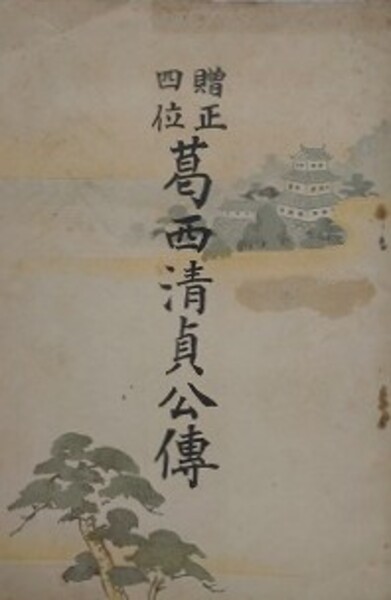 贈正
四位
葛西清貞公傳